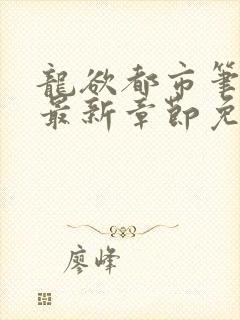 龍欲都市筆
最新章節免
廖峰